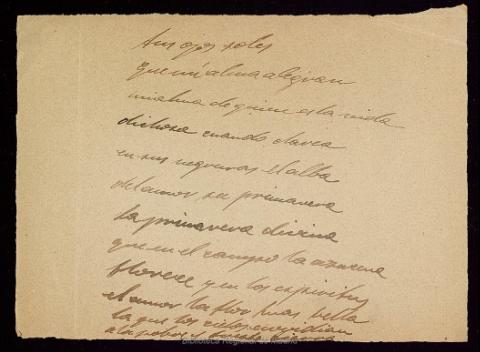 sus ojos soles
que mi alma alegran
mi alma de quien es la vida
dichosa cuando clarea
en sus negruras el alba
del amor su primavera
la primavera divina
que en el campo la azucena
florece y en los espiritus
el amor la flor mas bella
la que los cielos envidian
a la pobre
Biblioteca Regional de Madrid